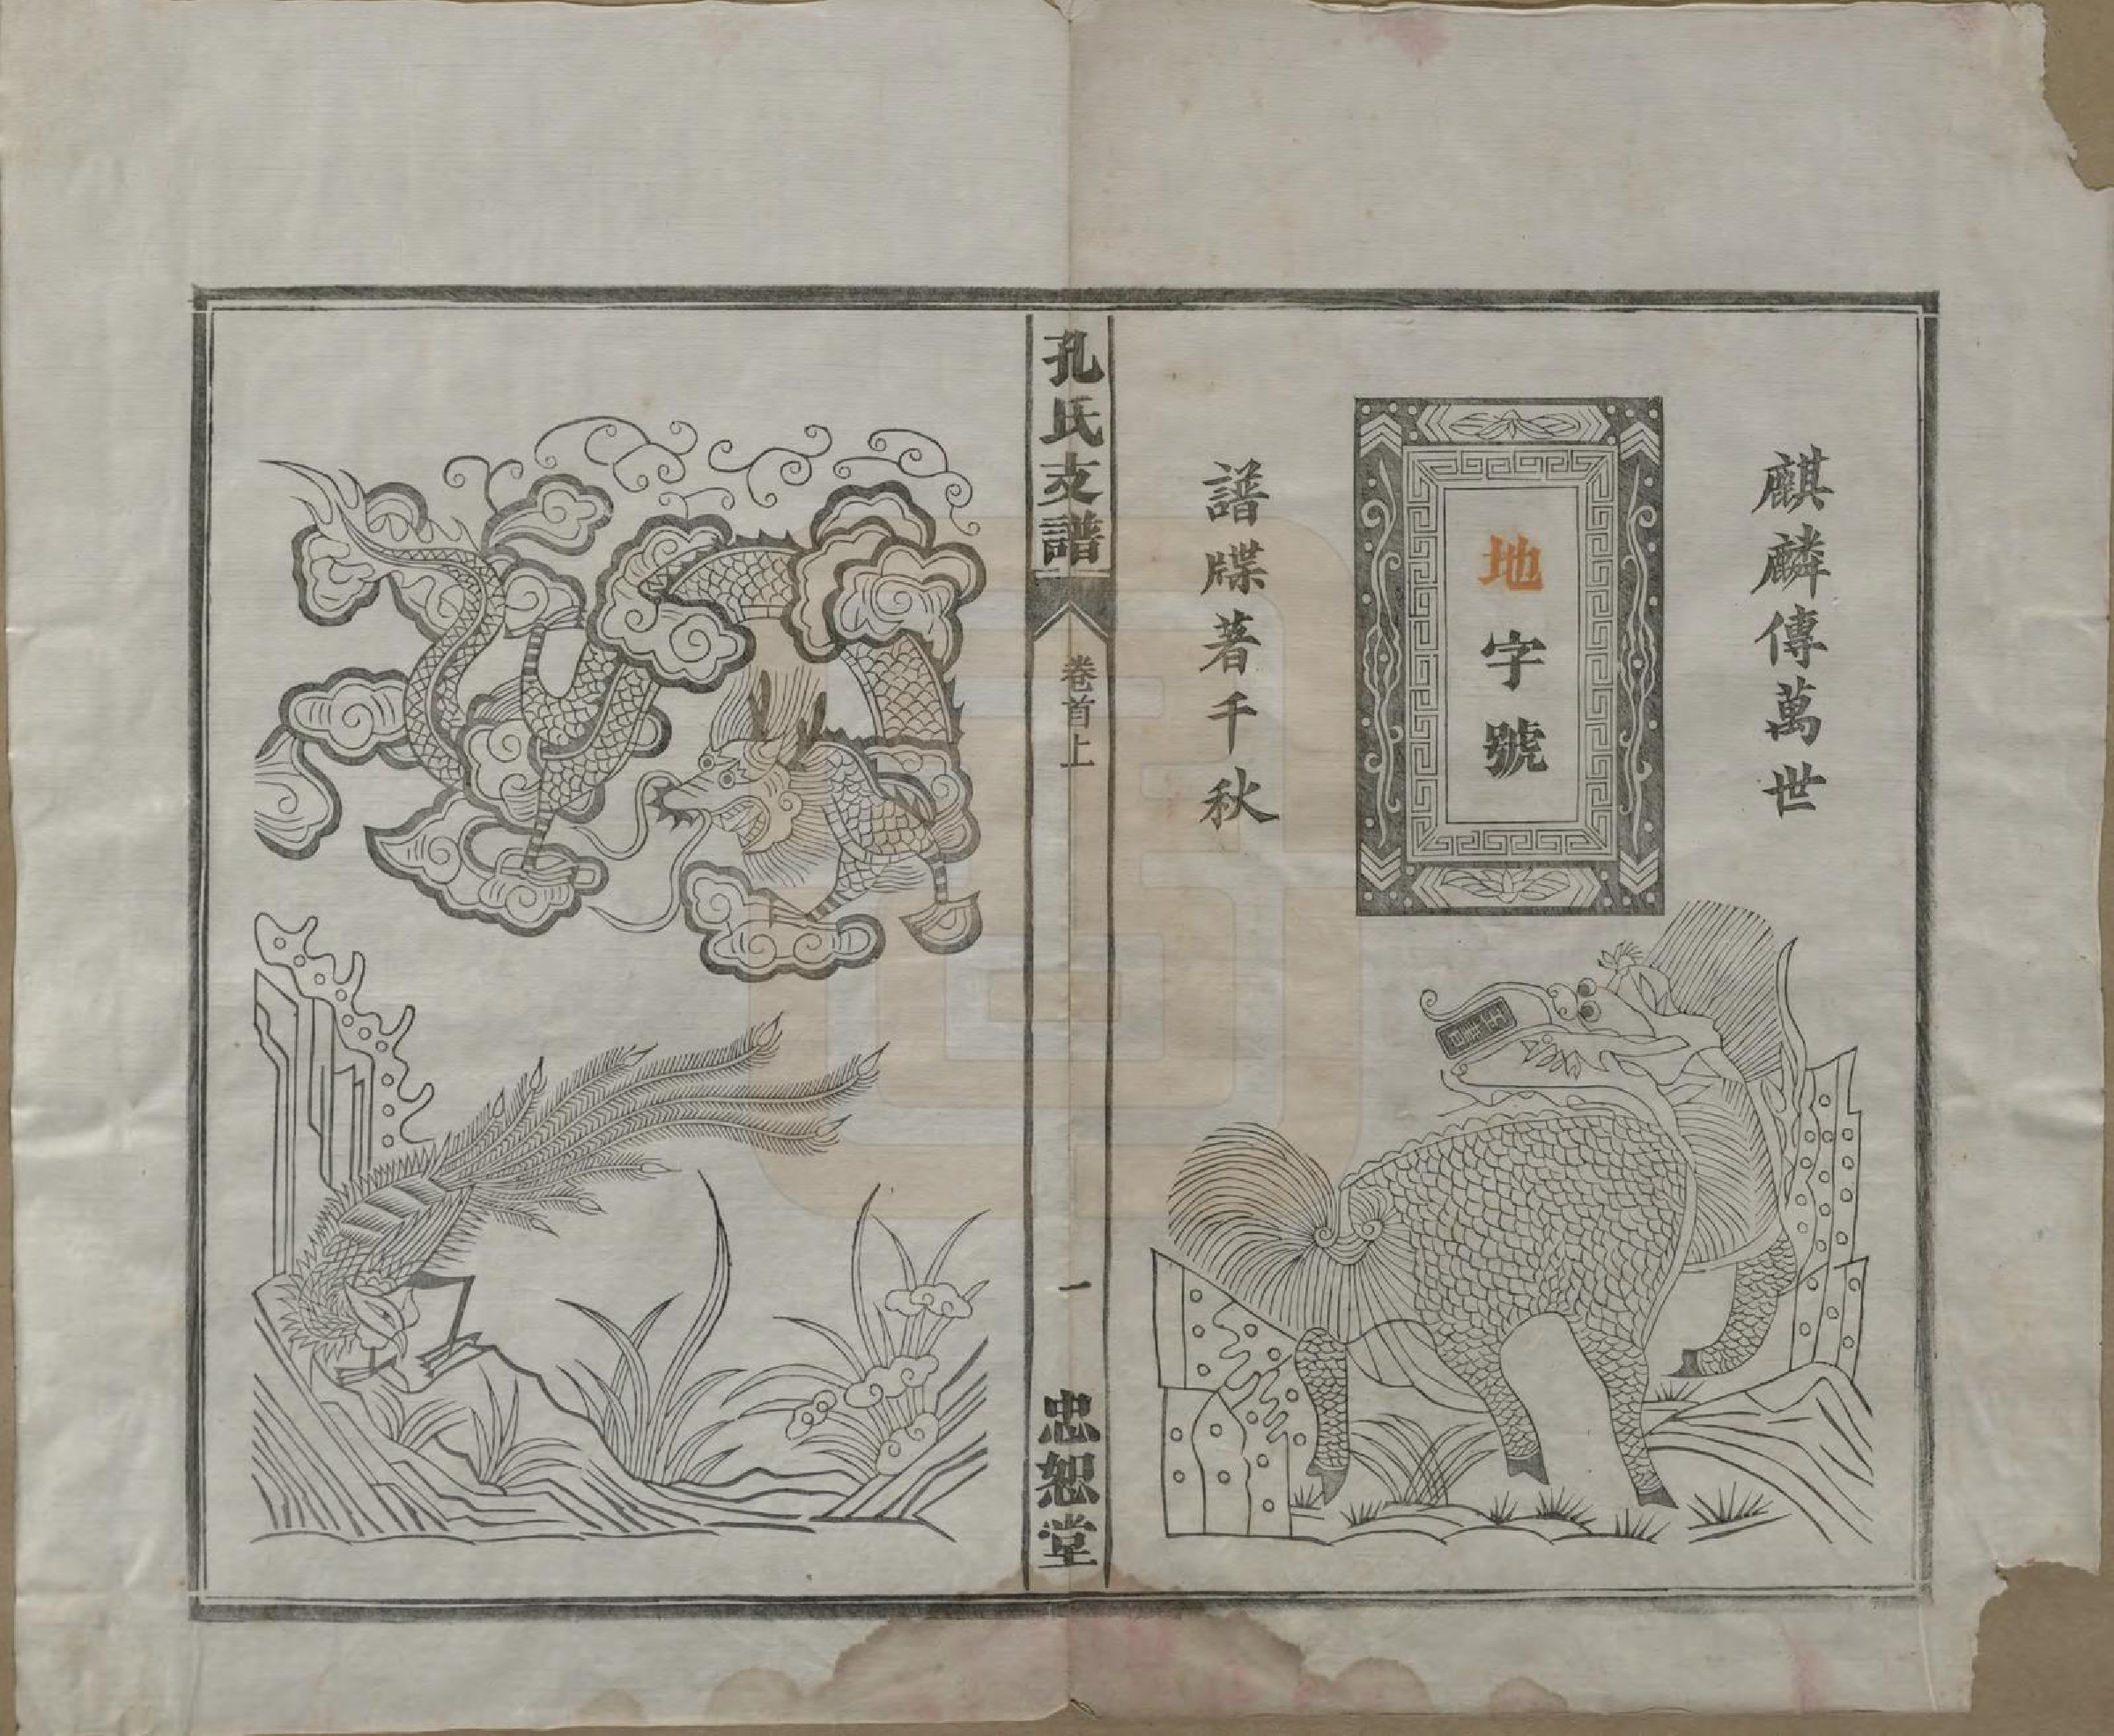 麒麟傳萬世
地字號
譜牒著千秋
孔氏支譜
卷首上
一
忠恕堂